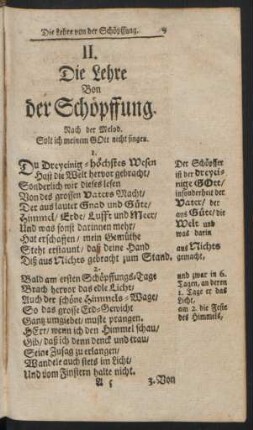 Die Lehre von der Schöpffung. 9
II.
Die Lehre
Von
der Schöpffung.
Nach der Melod.
Solt ich meinem GOtt nicht singen.
1.
DU Dreyeinig-höchstes Wesen
Hast die Welt hervor gebracht,
Sonderlich wir dieses lesen
Von des grossen Vaters Macht,
Der aus lauter Gnad und Güte,
Himmel, Erde, Lufft und Meer,
Und was sonst darinnen mehr,
Hat erschaffen, mein Gemüthe
Steht erstaunt, daß deine Hand
Diß aus Nichts gebracht zum Stand.
Der Schöpffer
ist der dreyei-
nige GOtt,
insonderheit der
Vater, der
aus Güte, die
Welt und
was darin
aus Nichts
gemacht,
2.
Bald am ersten Schöpffungs-Tage
Brach hervor das edle Licht,
Auch der schöne Himmels-Wage,
So das grosse Erd-Gewicht
Ganz umgiebet, muste prangen.
HErr, wenn ich den Himmel schau,
Gib, daß ich denn denck und trau,
Seine Zusag zu erlangen,
Wandele auch stets im Licht,
Und vom Finstern halte nicht.
und zwar in 6.
Tagen, an deren
1. Tage er das
Licht,
am 2. die Feste
des Himmels,
A 5
3. Von